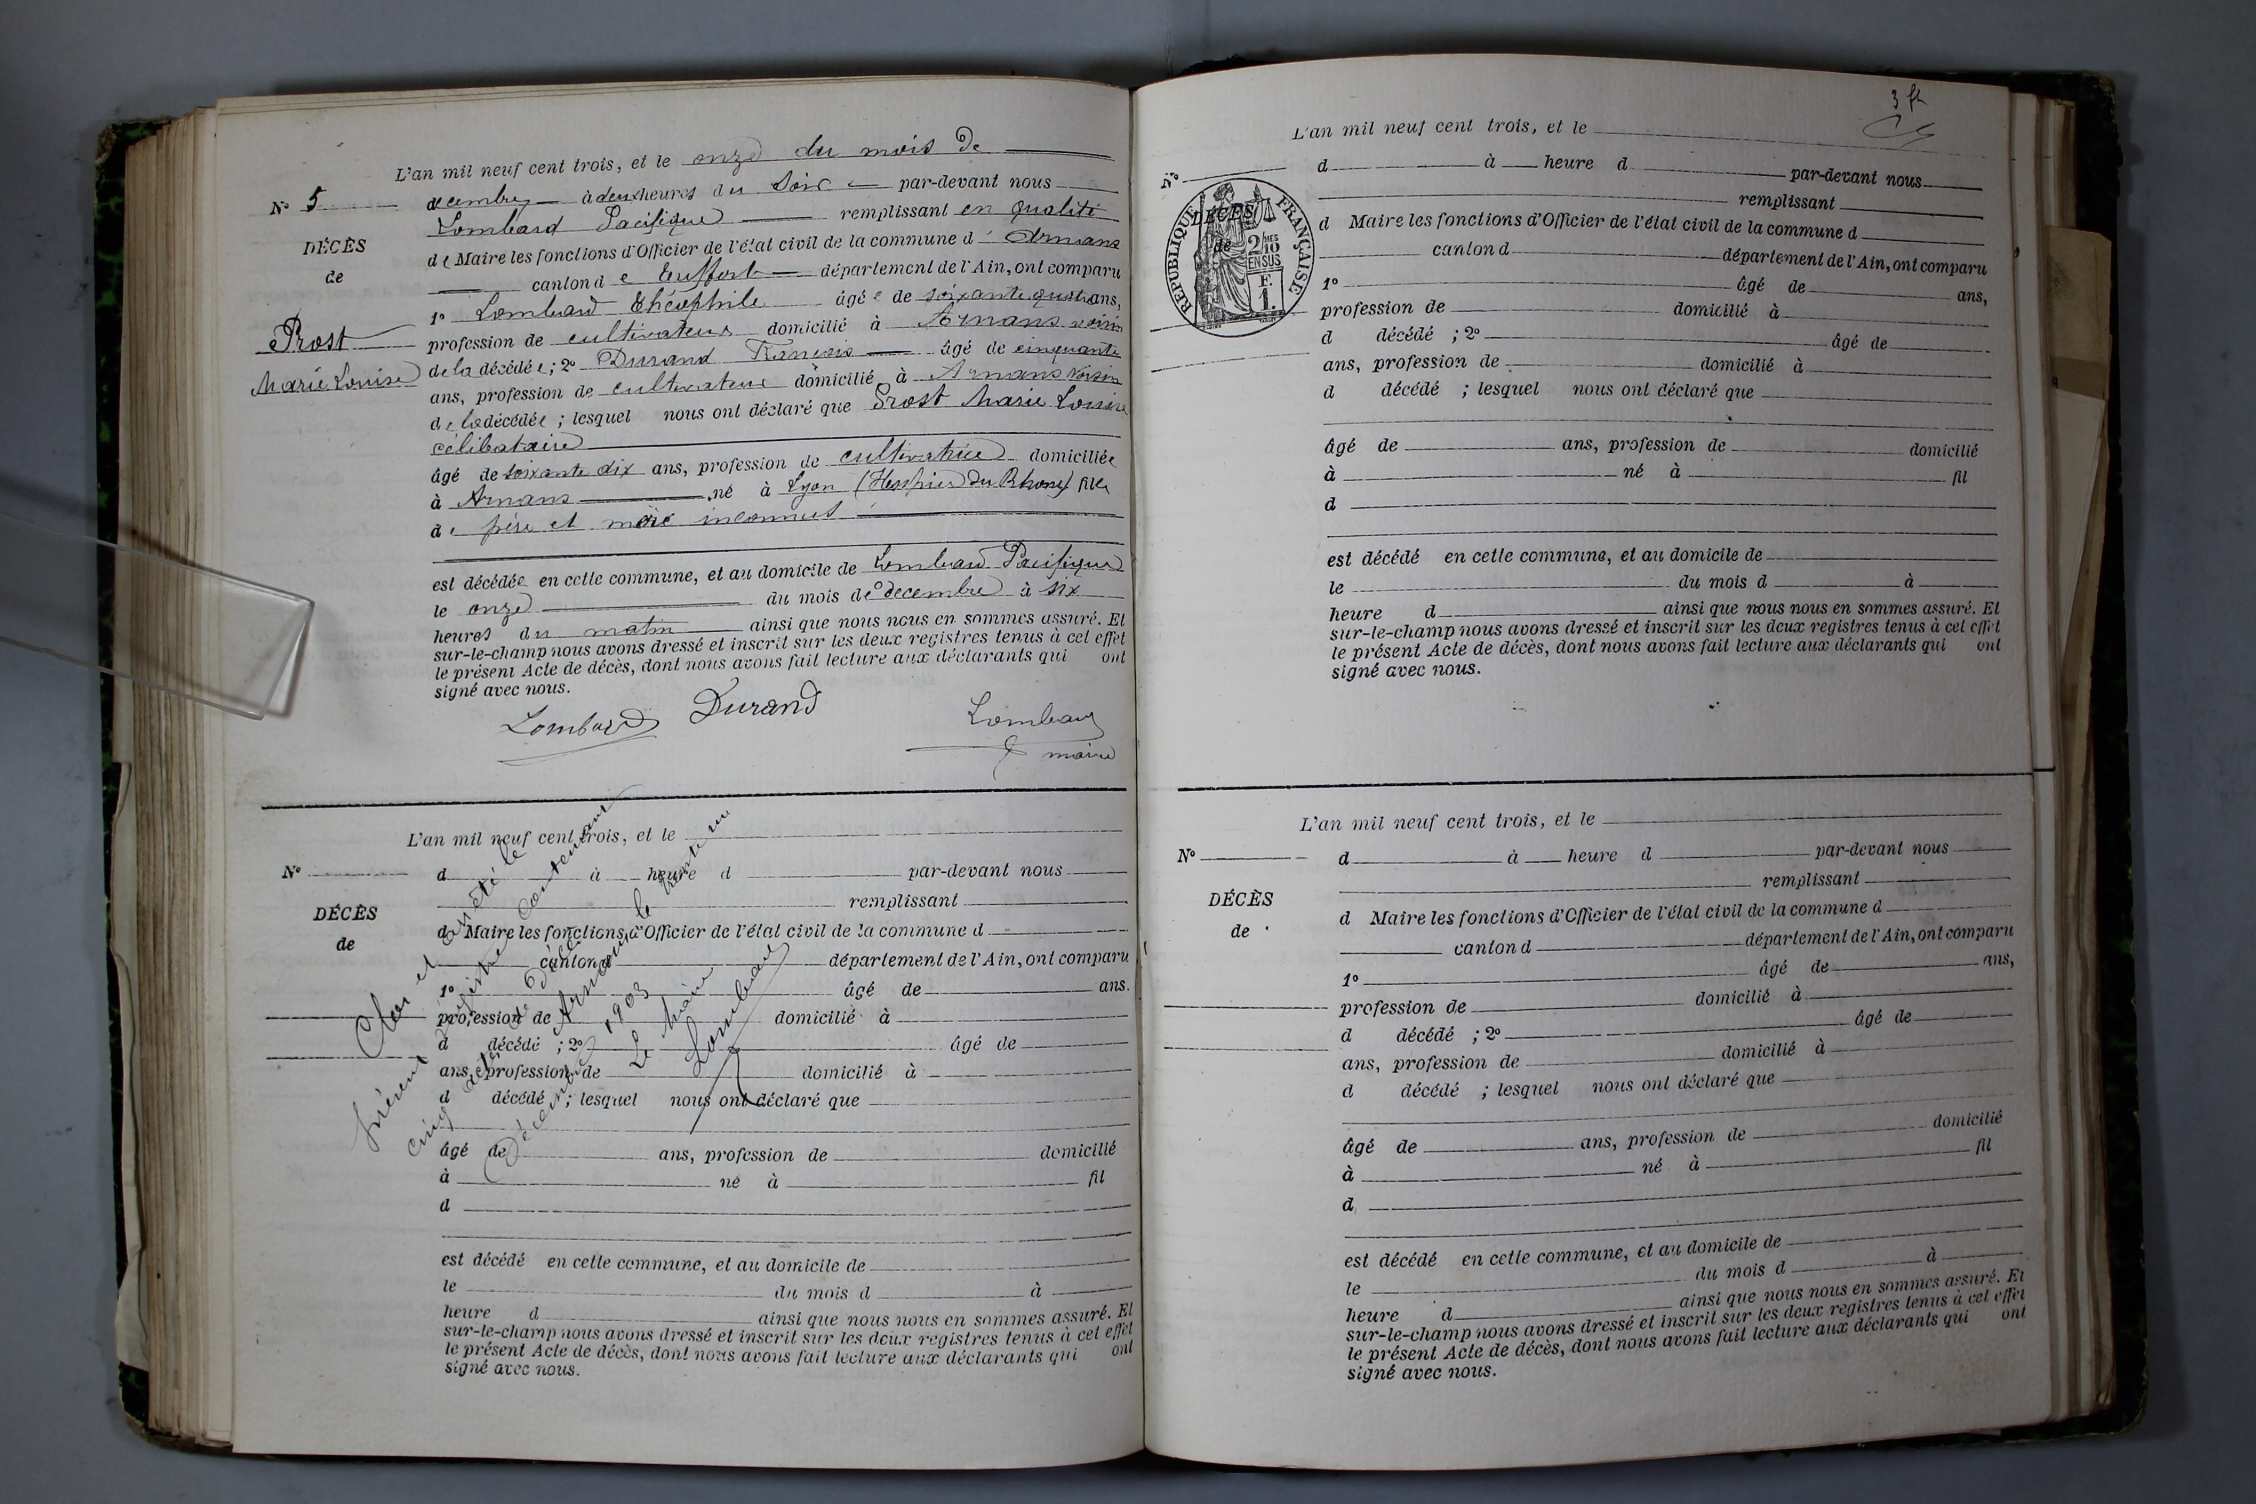 L'an mil neuf cent trois, et le onze du mois de
Nº 5
decembre à deux heures du soir par-devant nous
Lombard Pacifique remplissant en qualité
DÉCÈS
de Maire les fonctions d'Officier de l'état civil de la commune d'Arnans
de
canton de Treffort département de l'Ain, ont comparu
1º Lombard Théophile âgé de soixante quatre ans,
Prost
profession de cultivateur domicilié à Arnans voisin
Marie Louise
de la décédée ; 2º Durand François âgé de cinquante
ans, profession de cultivateur domicilié à Arnans voisin
de la décédée ; lesquel nous ont déclaré que Prost Marie Louise
célibataire
âgé de soixante dix ans, profession de cultivatrice domiciliée
à Arnans né à Lyon (Hospice du Rhone) fille
de père et mère inconnus
est décédée en cette commune, et au domicile de Lombard Pacifique
le onze du mois de decembre à six
heures du matin ainsi que nous nous en sommes assuré. Et
sur-le-champ nous avons dressé et inscrit sur les deux registres tenus à cet effet
le présent Acte de décès, dont nous avons fait lecture aux déclarants qui ont
signé avec nous.
Lombard Durand Lombard
maire
L'an mil neuf cent trois, et le
Nº
d à heure d par-devant nous
remplissant
DÉCÈS
d Maire les fonctions d'Officier de l'état civil de la commune d
de
canton d département de l'Ain, ont comparu
1º âgé de ans.
profession de domicilié à
d décédé ; 2º âgé de
ans, profession de domicilié à
d décédé ; lesquel nous ont déclaré que
âgé de ans, profession de domicilié
à né à fil
d
est décédé en cette commune, et au domicile de
le du mois d à
heure d ainsi que nous nous en sommes assuré. Et
sur-le-champ nous avons dressé et inscrit sur les deux registres tenus à cet effet
le présent Acte de décès, dont nous avons fait lecture aux déclarants qui ont
signé avec nous.
Clos et arrêté le
présent registre contenant
cinq actes de décès
Arnans le trente un
Décembre 1903
Le Maire
Lombard
3 ft
L'an mil neuf cent trois, et le
Nº
d à heure d par-devant nous
remplissant
DÉCÈS
de
RÉPUBLIQUE FRANÇAISE
2/10 MES
EN SUS
F.
1.
d Maire les fonctions d'Officier de l'état civil de la commune d
canton d département de l'Ain, ont comparu
1º âgé de ans,
profession de domicilié à
d décédé ; 2º âgé de
ans, profession de domicilié à
d décédé ; lesquel nous ont déclaré que
âgé de ans, profession de domicilié
à né à fil
d
est décédé en cette commune, et au domicile de
le du mois d à
heure d ainsi que nous nous en sommes assuré. Et
sur-le-champ nous avons dressé et inscrit sur les deux registres tenus à cet effet
le présent Acte de décès, dont nous avons fait lecture aux déclarants qui ont
signé avec nous.
L'an mil neuf cent trois, et le
Nº
d à heure d par-devant nous
remplissant
DÉCÈS
d Maire les fonctions d'Officier de l'état civil de la commune d
de
canton d département de l'Ain, ont comparu
1º âgé de ans,
profession de domicilié à
d décédé ; 2º âgé de
ans, profession de domicilié à
d décédé ; lesquel nous ont déclaré que
âgé de ans, profession de domicilié
à né à fil
d
est décédé en cette commune, et au domicile de
le du mois d à
heure d ainsi que nous nous en sommes assuré. Et
sur-le-champ nous avons dressé et inscrit sur les deux registres tenus à cet effet
le présent Acte de décès, dont nous avons fait lecture aux déclarants qui ont
signé avec nous.